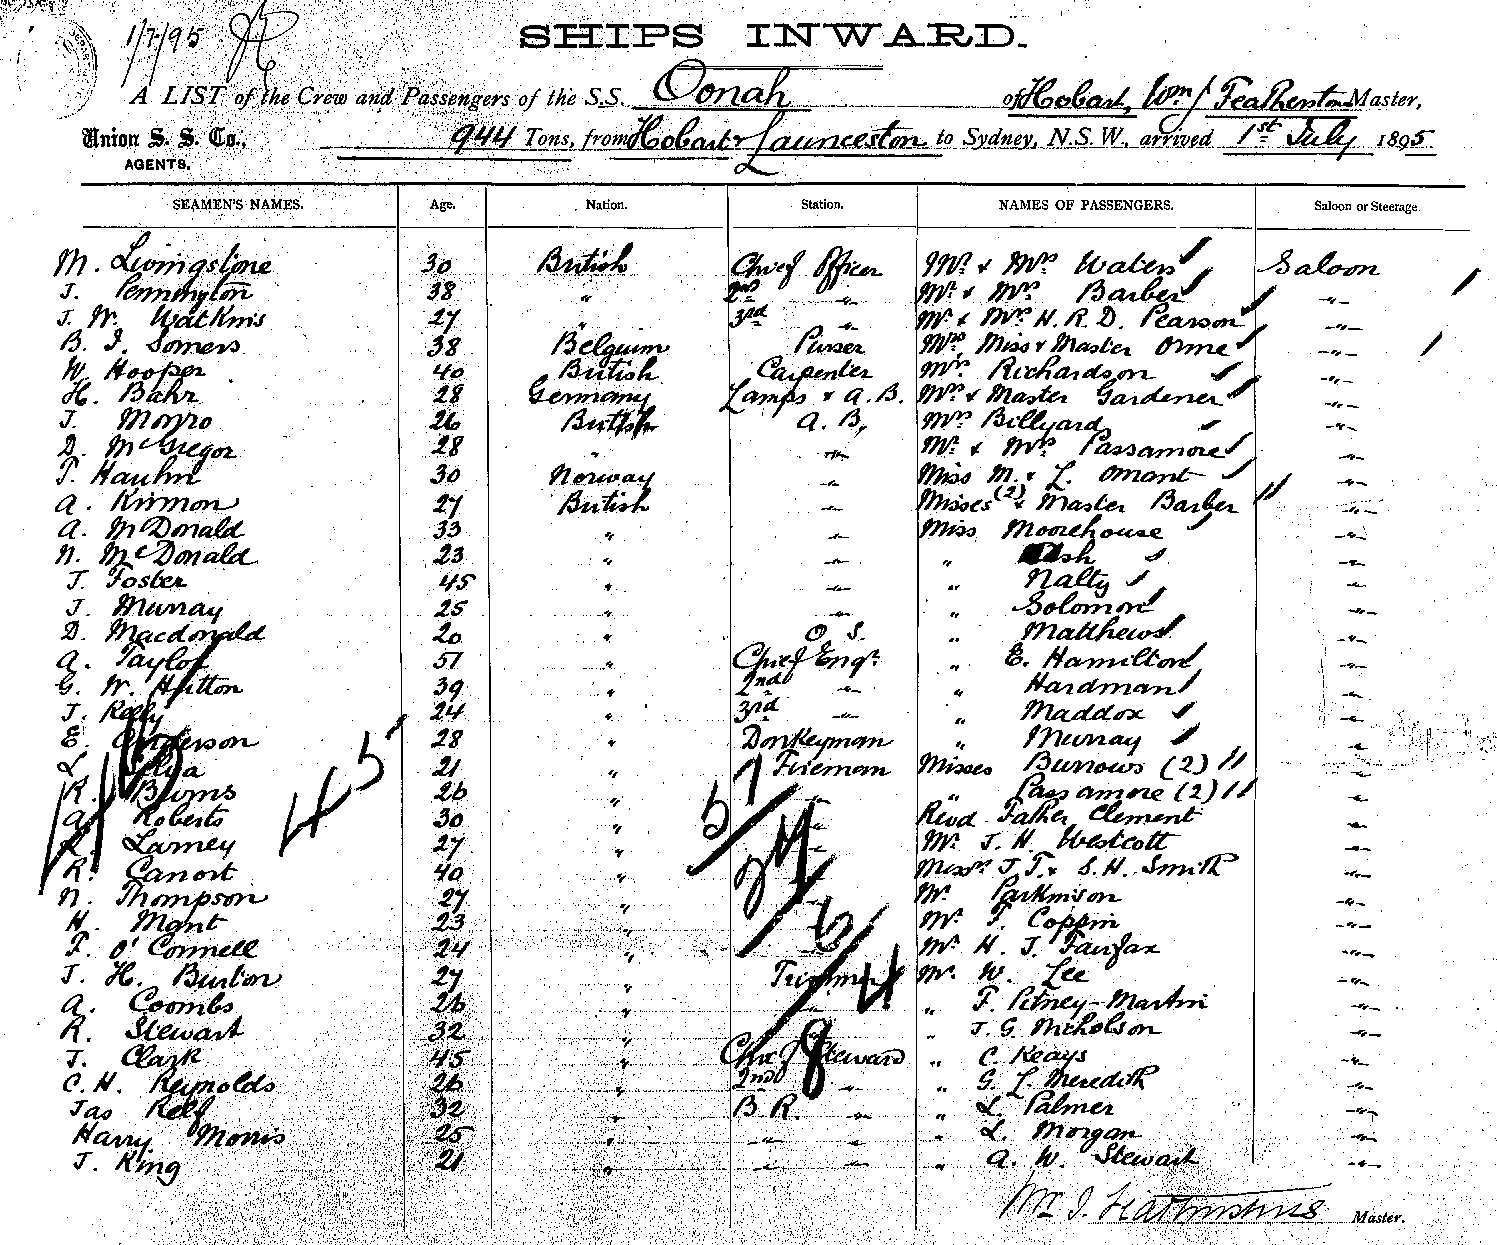 1/7/95
SHIPS INWARD.
A LIST of the Crew and Passengers of the S.S. Oonah of Hobart, Wm J Featherstone Master,
Union S. S. Co., 944 Tons, from Hobart & Launceston to Sydney, N.S.W., arrived 1st July 1895
AGENTS.
SEAMEN'S NAMES. Age. Nation. Station. NAMES OF PASSENGERS. Saloon or Steerage.
M. Livingstone 30 British Chief Officer Mr. & Mrs Waters Saloon
J. Pennington 38 " 2nd " Mr. & Mrs Barber "
J. W. Watkins 27 " 3rd " Mr & Mrs H. R. D. Pearson "
B. I. Somers 38 Belguim Purser Mrs, Miss & Master Orme "
W Hooper 40 British Carpenter Mrs. Richardson "
H. Bahr 28 Germany Lamps & A.B. Mrs & Master Gardener "
J. Monro 26 British A. B, Mrs Billyard "
D. McGregor 28 " " Mr. & Mrs Passamore "
T. Hauhn 30 Norway " Miss M. & L. Omant "
A. Kinmon 27 British " Misses (2) & Master Barber "
A. McDonald 33 " " Miss Moorehouse "
N. McDonald 23 " " " Ash "
J. Foster 45 " " " Nalty "
J. Murray 25 " " " Solomon "
D. Macdonald 20 " O S. " Matthews "
A. Taylor 51 " Chief Engr. " E. Hamilton "
G. W. Hutton 39 " 2nd " " Hardman "
J. Kelly 24 " 3rd " " Maddox "
E. Anderson 28 " Donkeyman " Murray "
L. 21 " Fireman Misses Burrows (2) "
R. Burns 26 " " " Passamore (2) "
A. Roberts 30 " " Revd Father Clement "
R. Larney 27 " " Mr. J. H. Westcott "
R. Canort 40 " Messrs J. T. & S. H. Smith "
N. Thompson 27 " Mr. Parkinson "
H. Mant 23 " Mr. T. Coppin "
F. O'Connell 24 " Mr. H. J. Fairfax "
J. H. Burton 27 " Trimmer Mr. W. Lee "
A. Coombs 26 " " " F. Pitney-Martin "
R. Stewart 32 " " J. G. Nicholson "
J. Clark 45 " Chief Steward " C. Keays "
C. H. Reynolds 26 " 2nd " " G. L. Meredith "
Jas Relf 32 " B R. " " L. Palmer "
Harry Morris 25 " " " " L. Morgan "
J. King 21 " " " " A. W. Stewart "
Wm J. Featherstone Master.